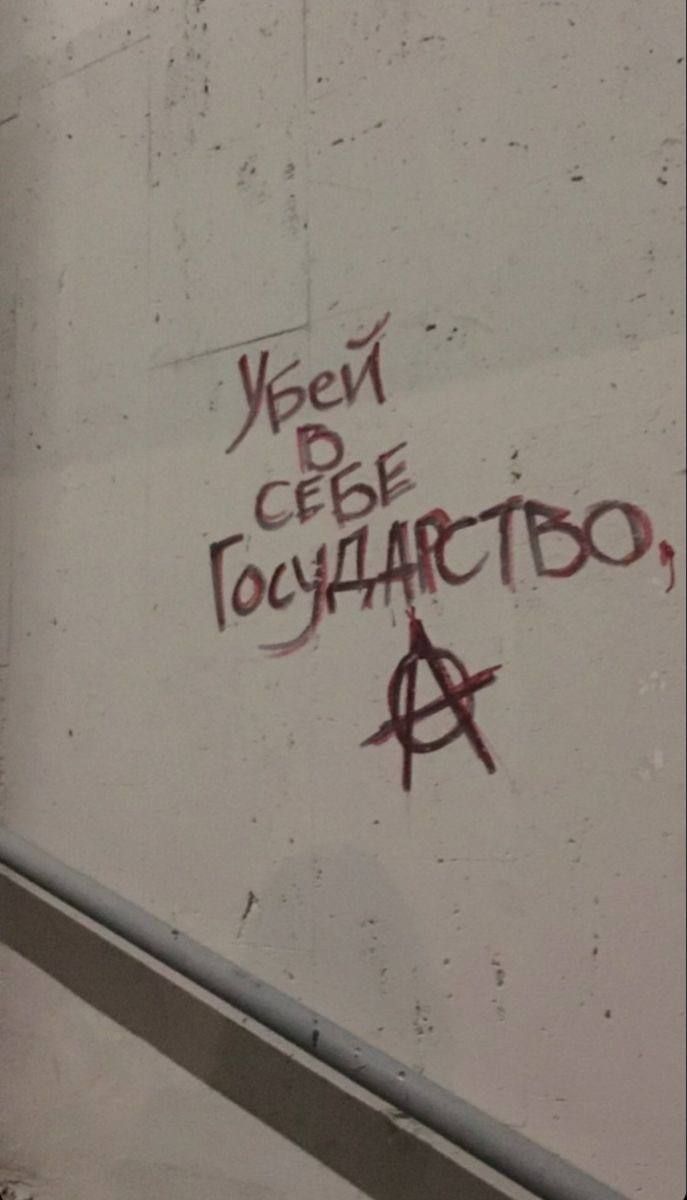 Убей
в
СЕБЕ
ГосуДАРСТВО,
Ⓐ